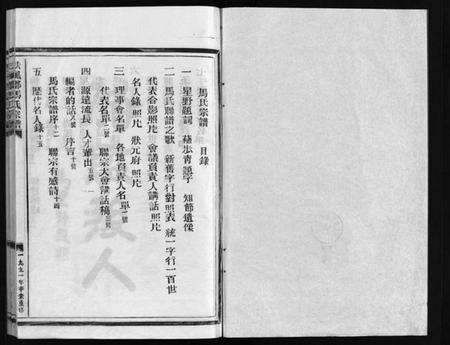 馬氏宗譜　目錄
一　星野題詞　題字　知節遺像
二　馬氏聯譜之歌　新舊字行對照表　統一字行一百世
代表合影照片　會議負責人講話照片
名人錄照片　狀元府照片
三　理事會名單　各地負責人名單
代表名單　聯宗大會講話稿
四　源遠流長　人才輩出
編者的話　序言
馬氏宗譜序　聯宗有感詩
五　歷代名人錄
馬氏宗譜
一九九一年